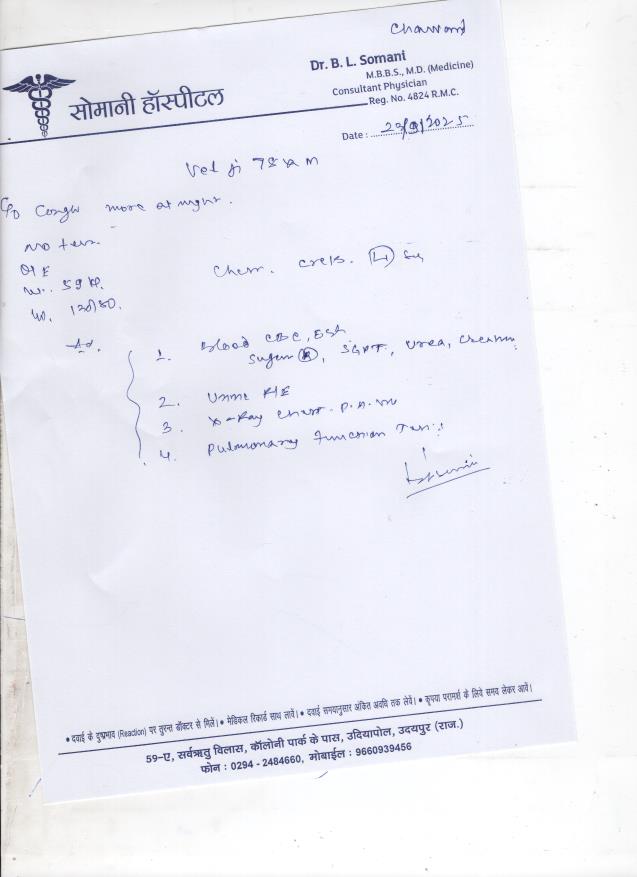 Chawand
सोमानी हॉस्पीटल
Dr. B. L. Somani
M.B.B.S., M.D. (Medicine)
Consultant Physician
Reg. No. 4824 R.M.C.
Date : 23/9/2025
ji 78 M
C/o Cough more at night.
No fever.
O/E
Wt. 59 kg.
120/80.
Chest. (L)
Ad.
1. Blood CBC, ESR
Sugar (R), SGPT, Urea, Creatinine
2. Urine R/E
3. X-Ray Chest. P.A. View
4. Pulmonary Function Test
• दवाई के दुष्प्रभाव (Reaction) पर तुरन्त डॉक्टर से मिलें। • मेडिकल रिकार्ड साथ लावें। • दवाई समयानुसार अंकित अवधि तक लेवें। • कृपया परामर्श के लिये समय लेकर आवें।
59-ए, सर्वऋतु विलास, कॉलोनी पार्क के पास, उदियापोल, उदयपुर (राज.)
फोन : 0294 - 2484660, मोबाईल : 9660939456